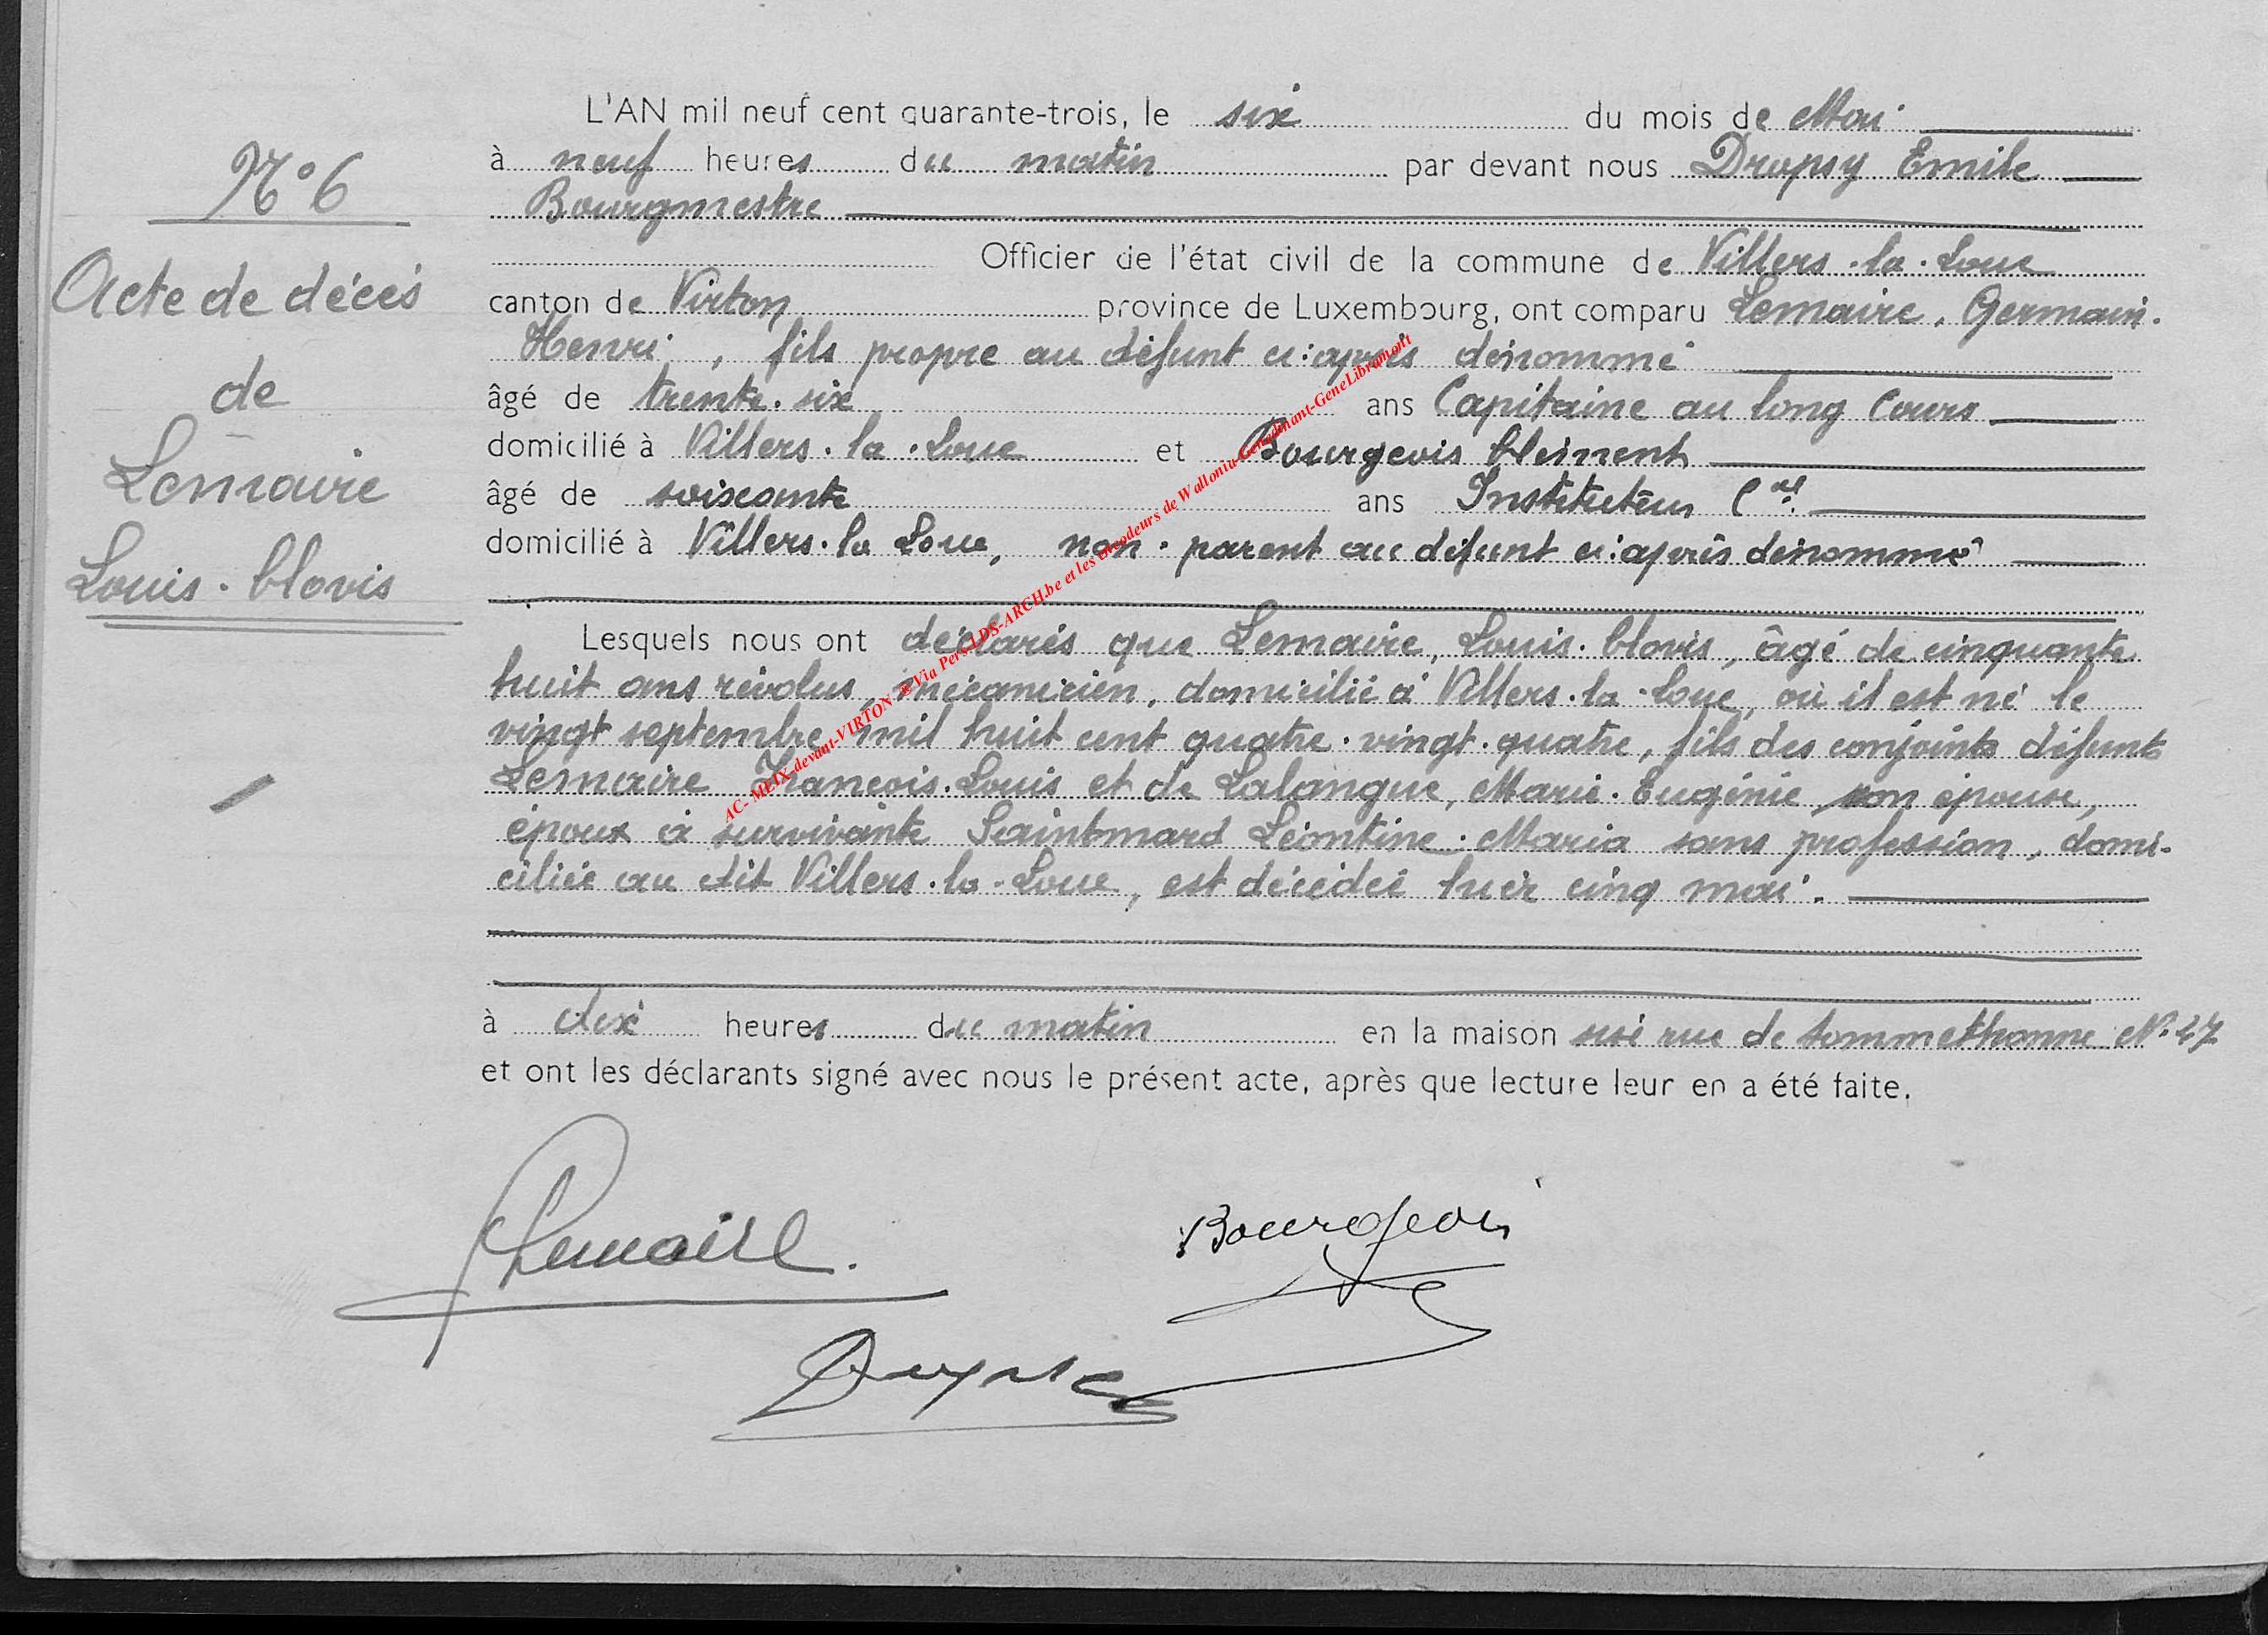 N° 6
Acte de décès
de
Lemaire
Louis-Clovis
L'AN mil neuf cent quarante-trois, le six du mois de Mai
à neuf heures du matin par devant nous Dropsy Emile
Bourgmestre
Officier de l'état civil de la commune de Villers-la-Loue
canton de Virton province de Luxembourg, ont comparu Lemaire, Germain-
Henri, fils propre au défunt ci-après dénommé
âgé de trente-six ans Capitaine au long Cours
domicilié à Villers-la-Loue et Bourgeois Clément
âgé de soixante ans Instituteur Cal
domicilié à Villers-la Loue, non-parent au défunt ci-après dénommé
Lesquels nous ont déclarés que Lemaire, Louis-Clovis, âgé de cinquante
huit ans révolus, mécanicien, domicilié à Villers-la-Loue, où il est né le
vingt septembre mil huit cent quatre-vingt-quatre, fils des conjoints défunts
Lemaire François-Louis et de Lalangue, Marie-Eugénie, son épouse,
époux à survivante Saintmard Léontine-Maria sans profession, domi-
ciliée au dit Villers-la-Loue, est décédé hier cinq mai.
à dix heures du matin en la maison sise rue de Sommethonne N° 27
et ont les déclarants signé avec nous le présent acte, après que lecture leur en a été faite.
Lemaire.
Bourgeois
Dropsy
AC- MEIX-devant-VIRTON - © Via Pers-LDS-ARCH.be et les encodeurs de Wallonia-Genedinant-GeneLibramont